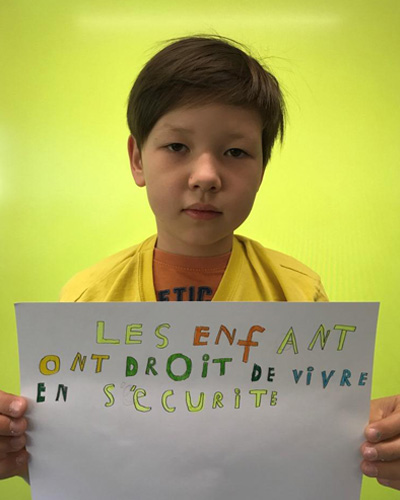 ETIC
LES ENfANT
ONT DROiT DE ViVRE
EN SÉCURiTÉ